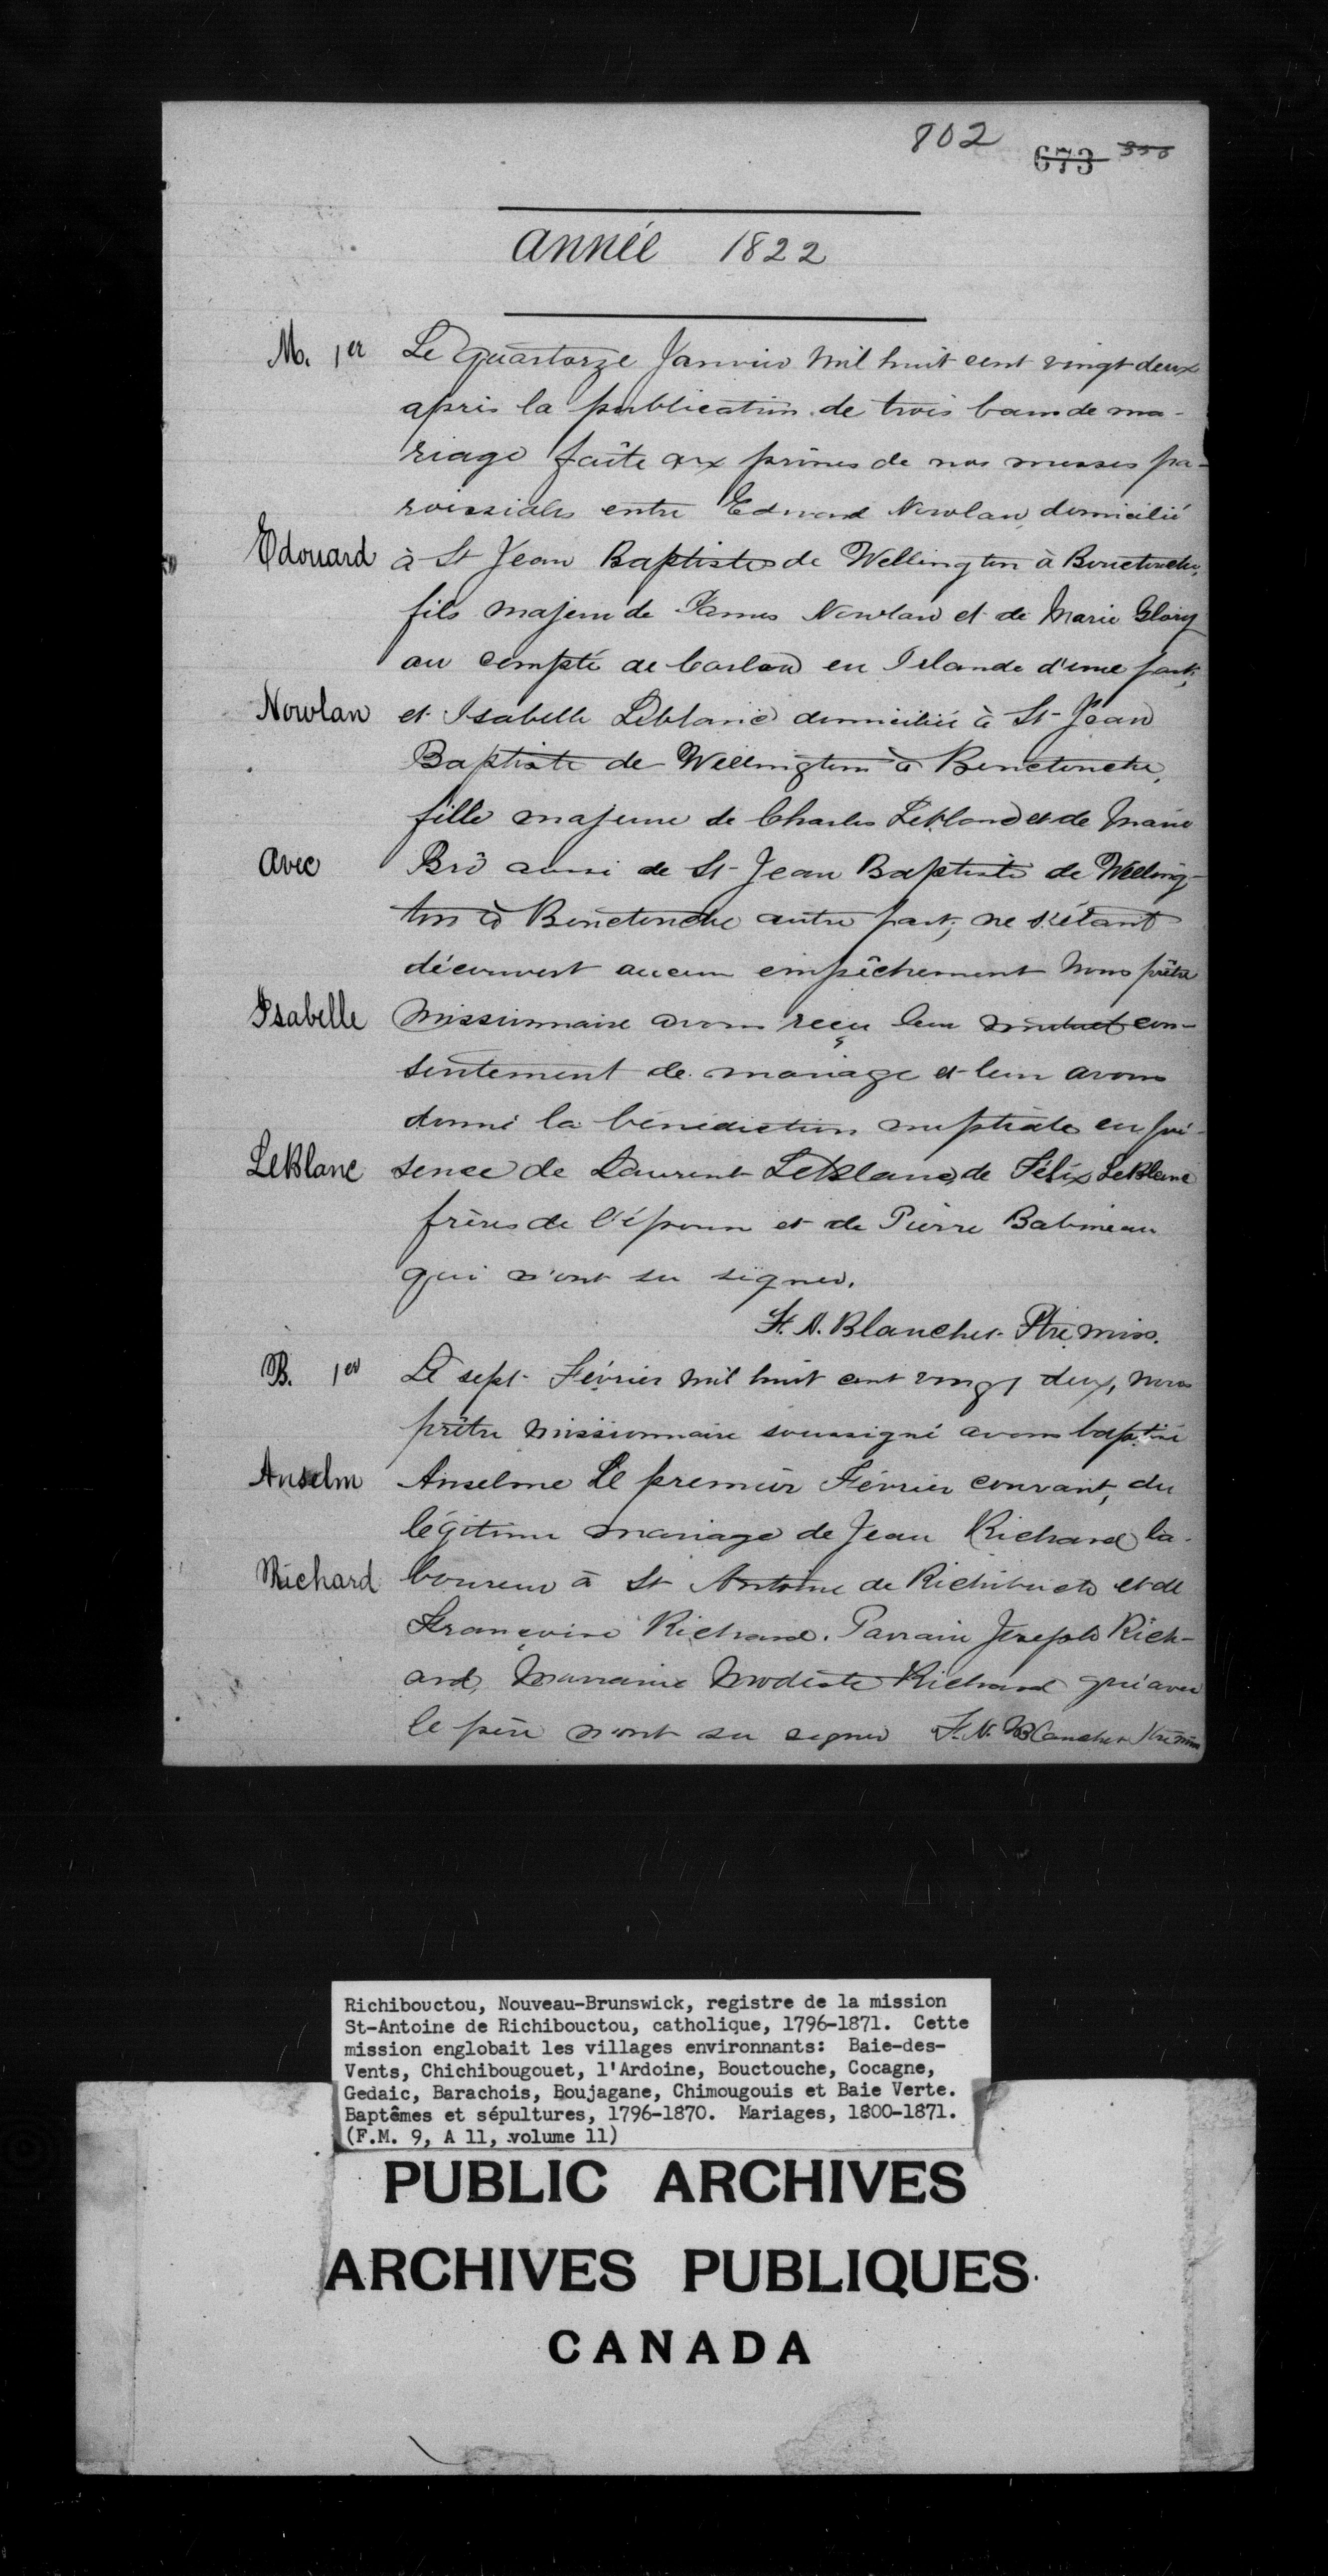 802
673 356
Année 1822
M. 1er Le Quartorze Janvier mil huit cent vingt deux
après la publication de trois bans de ma-
riage faîte aux prônes de nos messes pa-
roissiales entre Edward Nowlan, domicilié
Edouard à St Jean Baptiste de Wellington à Bouctouche,
fils majeur de James Nowlan et de Marie Glory
au compté de Carlow en Irlande d'une part,
Nowlan et Isabelle Leblanc domiciliée à St-Jean
Baptiste de Wellington à Bouctouche,
fille majeure de Charles LeBlanc et de Marie
Avec Brô aussi de St-Jean Baptiste de Welling-
ton à Bouctouche autre part, ne s'étant
découvert aucun empêchement Nous prêtre
Isabelle Missionnaire avons reçu leur mutuel con-
sentement de mariage et leur avons
donné la bénédiction nuptiale en pré-
LeBlanc sence de Laurent LeBlanc, de Félix LeBlanc
frères de l'épouse et de Pierre Babineau
qui n'ont su signer.
F. N. Blanchet Ptre miss.
B. 1er Le sept Février mil huit cent vingt deux, nous
prêtre missionnaire soussigné avons baptisé
Anselm Anselme le premier Février courant, du
légitime mariage de Jean Richard la-
Richard boureur à St Antoine de Richibucto et de
Françoise Richard. Parrain Joseph Rich-
ard, Marraine Modeste Richard qui avec
le père n'ont su signer F. N. Blanchet Ptre miss
Richibouctou, Nouveau-Brunswick, registre de la mission
St-Antoine de Richibouctou, catholique, 1796-1871. Cette
mission englobait les villages environnants: Baie-des-
Vents, Chichibougouet, l'Ardoine, Bouctouche, Cocagne,
Gedaic, Barachois, Boujagane, Chimougouis et Baie Verte.
Baptêmes et sépultures, 1796-1870. Mariages, 1800-1871.
(F.M. 9, A 11, volume 11)
PUBLIC ARCHIVES
ARCHIVES PUBLIQUES
CANADA